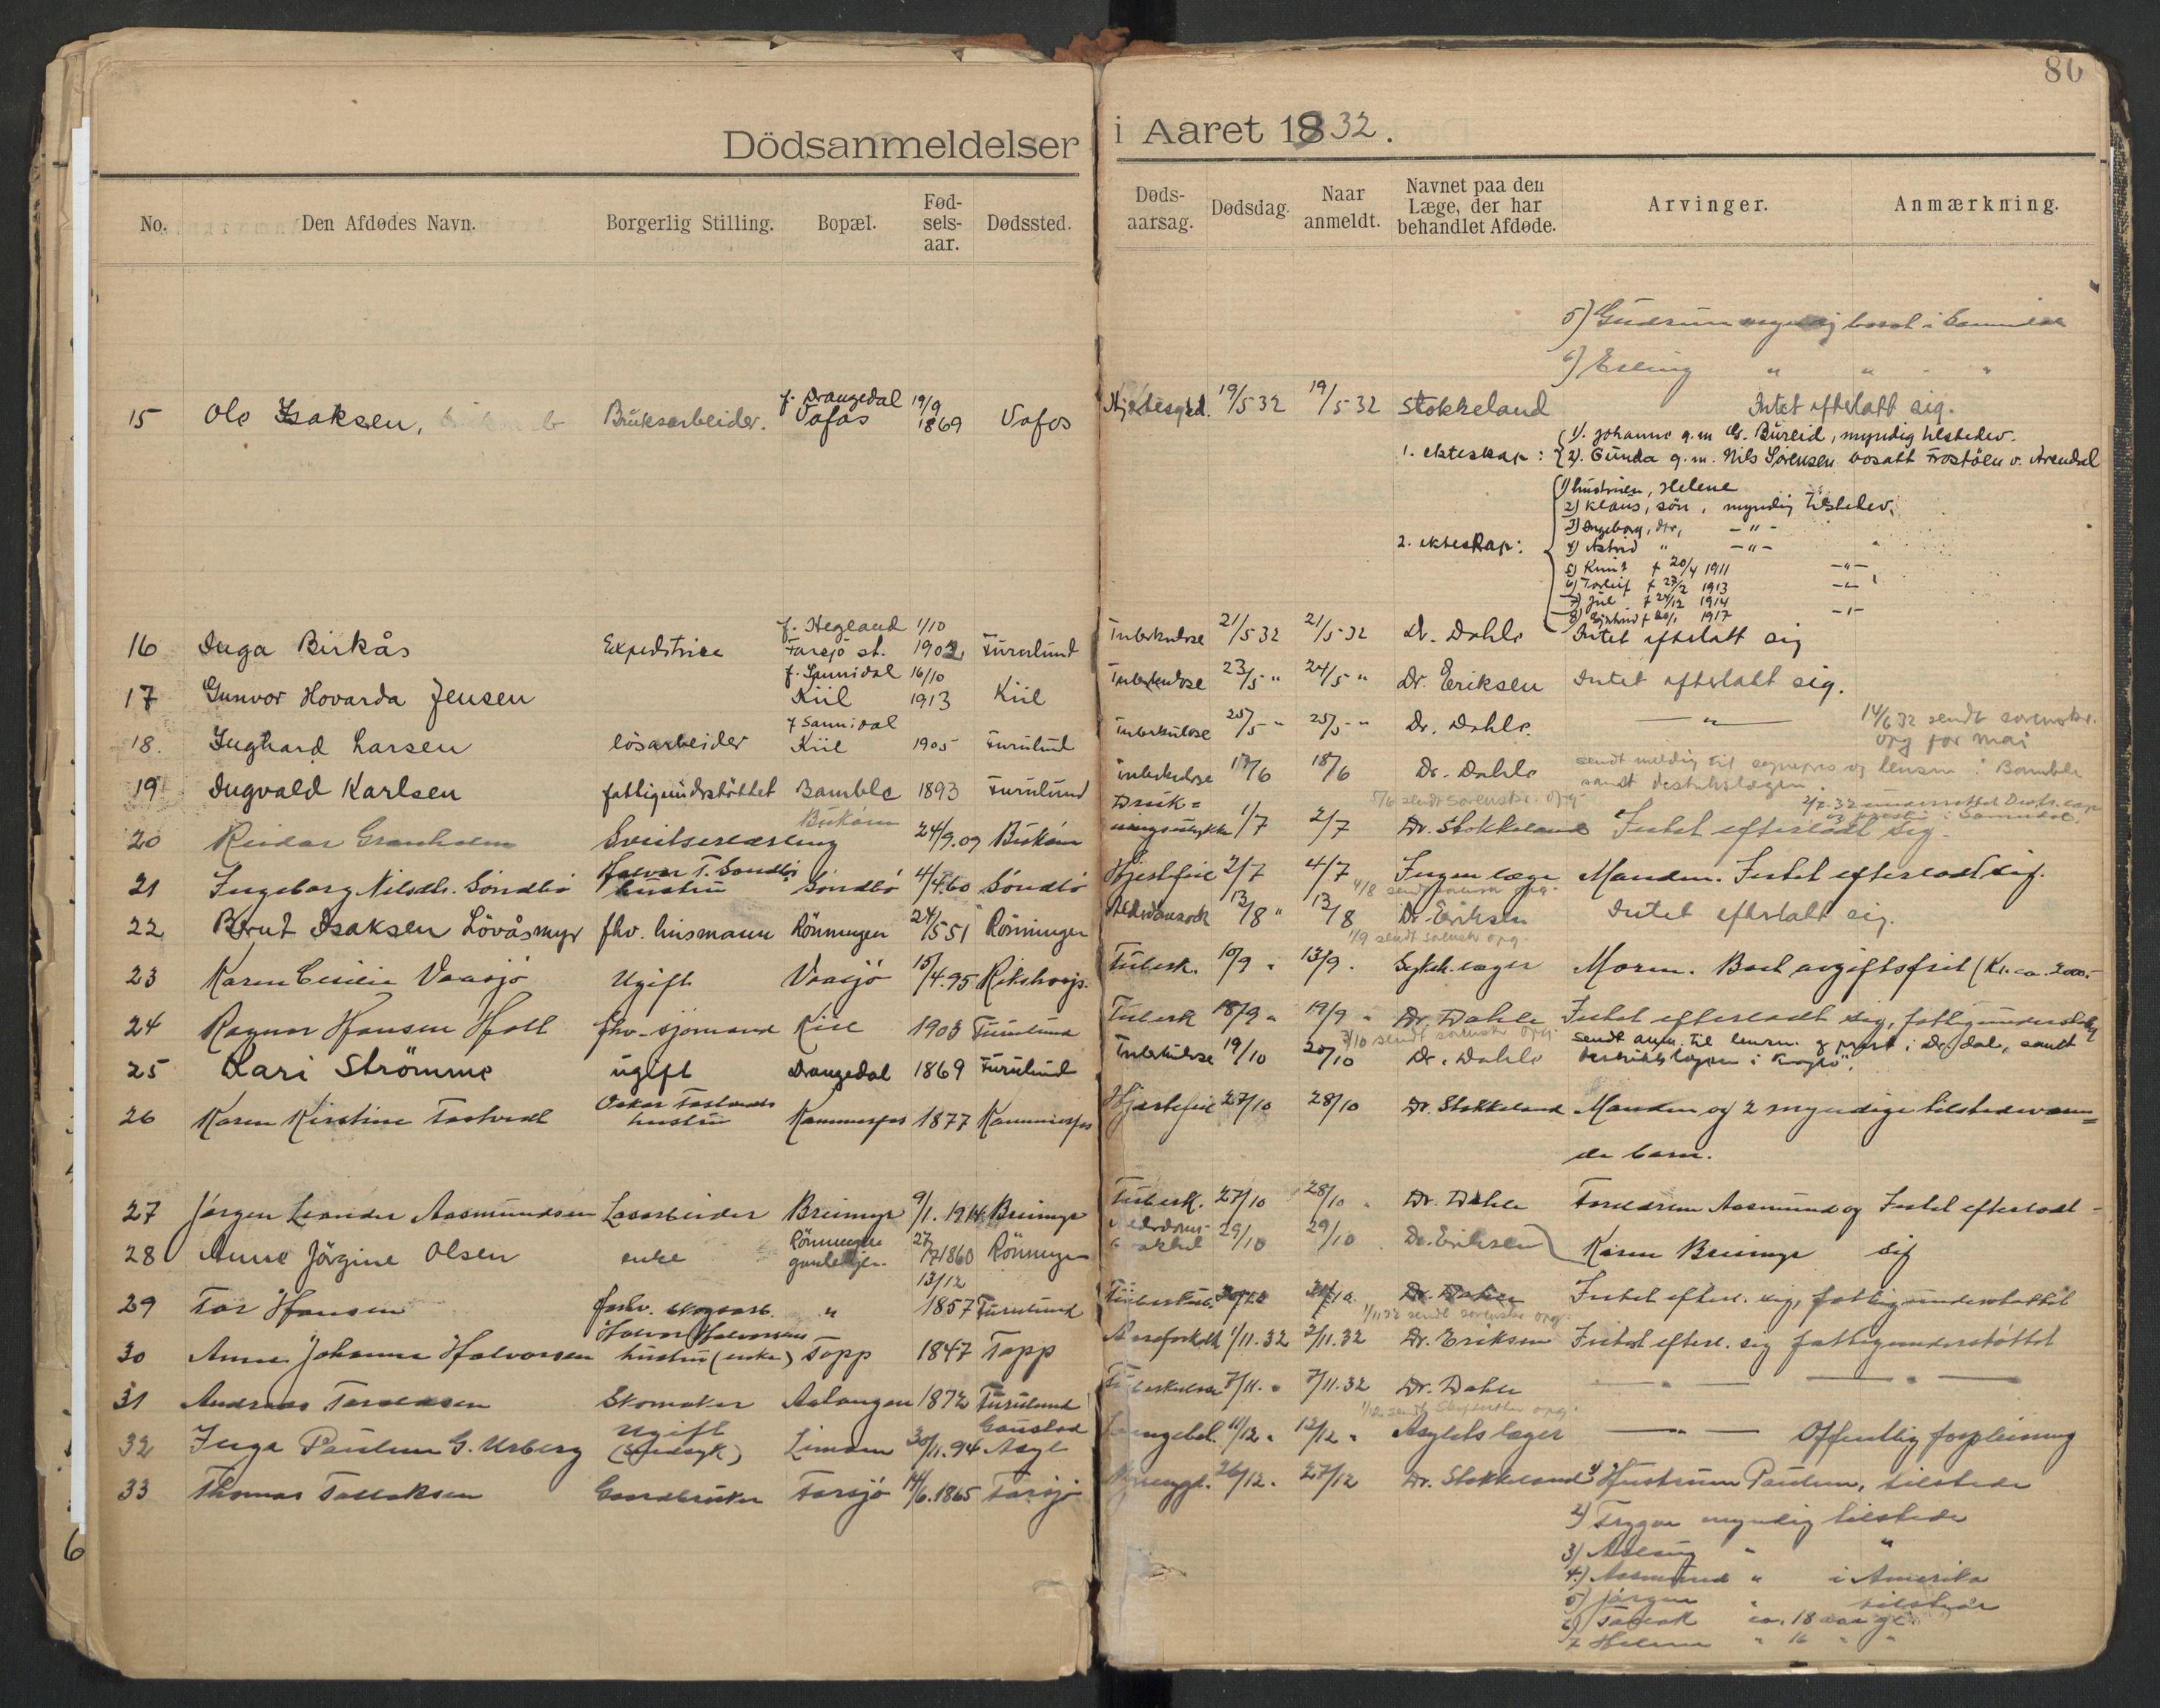 86
Dödsanmeldelser i Aaret 1932.
No. Den Afdødes Navn. Borgerlig Stilling. Bopæl. Fød-sels-aar. Dødssted. Døds-aarsag. Dødsdag. Naar anmeldt. Navnet paa den Læge, der har behandlet Afdøde. Arvinger. Anmærkning.
5) Gudrun myndig bosat i Sannidal
6) Erling " " - "
f. Drangedal 19/9
15 Ole Isaksen, Bruksarbeider. Vafos 1869 Vafos 19/5 32 19/5 32 Stokkeland Intet efterlatt sig.
1. ekteskap: 1). Johanne g.m. G. Büreid, myndig tilstedev.
2). Gunda g.m. Nils Sörensen bosatt Frostöen v. Arendal
2. ekteskap: 1) hustruen, Helene
2) Klaus, sön, myndig tilstedev.
3) Ingeborg, dtr, - " -
4) Astrid " - " -
5) Knut f 20/4 1911 - " -
6) Torleif f 27/2 1913 - " -
7) Jul f 24/12 1914
8) 1917 - " -
f. Hegland 1/10
16 Inga Birkås Expeditrice Farsjö st. 1902 Furulund Tuberkulose 21/5 32 21/5 32 Dr. Dahle Intet efterlatt sig
f. Sannidal 16/10
17 Gunvor Hovarda Jensen Kiil 1913 Kiil Tuberkulose 23/5 " 24/5 " Dr. Eriksen Intet efterlatt sig.
f Sannidal
18. Inghard Larsen lösarbeider Kiil 1905 Furulund Tuberkulose 25/5 - " 25/5 - " Dr. Dahle. — " — 14/6 32 sendt sorenskr. opg for mai
19 Ingvald Karlsen fattigunderstöttet Bamble 1893 Furulund Tuberkulose 17/6 18/6 Dr. Dahle sendt melding til sogneprs og lensm. i Bamble
samt distriktslægen.
5/6 sendt sorenskr. opg.
20 Reidar Granholm Sveitserlærling Buköin 24/9.09 Buköin Druk=ningsulykke 1/7 2/7 Dr. Stokkeland Intet efterladt sig.
21 Ingeborg Nilsdtr. Söndbö Halvor T. Söndbös hustru Söndbö 4/4.60 Söndbö Hjertfeil 2/7 4/7 Ingen læge Manden. Intet efterladt sig.
22 Bernt Isaksen Lövåsmyr fhv. husmann Rönningen 24/5 51 Rönningen 13/8 " 13/8 Dr. Eriksen Intet efterlatt sig.
1/9 sendt sorenskr opg.
23 Karen Cecilie Vaasjö Ugift Vaasjö 15/4.95 Rikshosp. Tuberk. 10/9 " 13/9. Sykeh. læger Moren. Boet avgiftsfrit (Kr. ca. 2000.-
24 Ragnar Hansen Holt fhv. sjömand Kiil 1903 Furulund Tuberk 18/9 " 19/9 " Dr. Dahle Intet efterladt sig, fattigunderstöttet
3/10 sendt sorenskr opg. sendt anm. til lensm. og prest i Dr.dal, samt
25 Kari Strömme ugift Drangedal 1869 Furulund Tuberkulose 19/10 20/10 Dr. Dahle distriktslægen i Kragerö.
26 Karen Kirstine Tostvedt Oskar Tostvedts hustru Kammerfos 1877 Kammerfos Hjertefeil 27/10 28/10 Dr. Stokkeland Manden og 2 myndige tilstedeværen=
de barn.
27 Jörgen Leander Aasmundsen Løsarbeider Breimyr 9/1. 1914 Breimyr Tuberk. 27/10 28/10 Dr. Dahle Foreldrene Aasmund og Intet efterladt
28 Anne Jörgine Olsen enke Rönningen gamlehjem 27/7 1860 Rönningen 29/10 29/10 Dr. Eriksen Karen Breimyr sig
13/12
29 Tor Hansen forhv. skogsarb. " 1857 Furulund Dr. Dahle Intet efterl. sig, fattigunderstöttet
1/11 32 sendt sorenskr opg.
30 Anne Johanne Halvorsen Halvor Halvorsens hustru (enke) Topp 1847 Topp 1/11.32 2/11.32 Dr. Eriksen Intet efterl. sig fattigunderstöttet
31 Andreas Tereldsen Skomaker Aatangen 1872 Furulund Tuberkulose 7/11. " 7/11.32 Dr. Dahle — " — — " —
32 Inga Pauline G. Urberg Ugift (sindsyk) Limoen 30/11.94 Gaustad Asyl 11/12 " 12/12 " Asylets læger — " — Offentlig forpleining
33 Thomas Tallaksen Gaardbruker Farsjö 14/6.1865 Farsjö 26/12. 27/12 Dr. Stokkeland 1) Hustruen Pauline, tilstede
2) Trygve myndig tilstede
3) Aslaug " "
4) Aasmund " i Amerika
5) Jörgen " tilstede
6) Tallak ca. 18 aar gl.
7 Helene " 16 " "
6